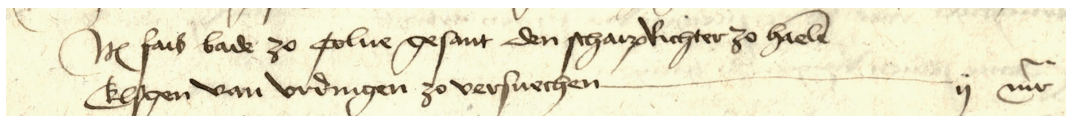 Jt fais bade zo Colne gesant den scharprichter zo haelen
Elsgen van vrdingen zo versuechen ij mr